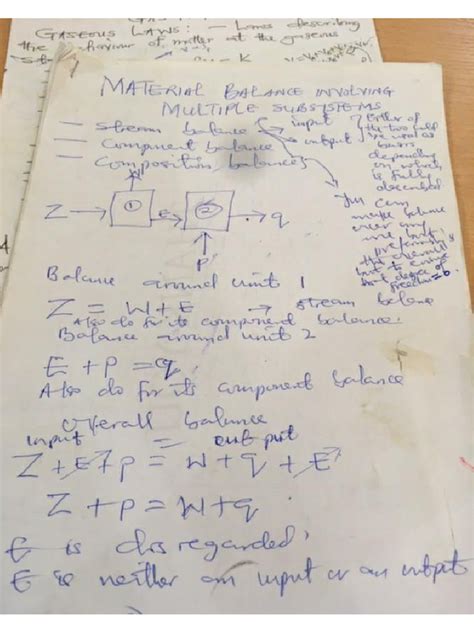 GASEOUS LAWS: - Laws describing
the behaviour of matter at the gaseous
MATERIAL BALANCE INVOLVING
MULTIPLE SUBSYSTEMS
— Stream balance
— Component balance
— Composition balances
input
output
Either of
the two could
be used as
basis
depending
on which
is fully
described
You can
make balance
over any
one unit,
the overall
degree of
freedom = 0
W
Z → ① E → ② → q
P
Balance around unit 1
Z = W + E → stream balance
Also do for its component balance.
Balance around unit 2
E + P = q
Also do for its component balance
Overall balance
input = output
Z + E + P = W + q + E
Z + P = W + q
E is disregarded,
E is neither an input or an output